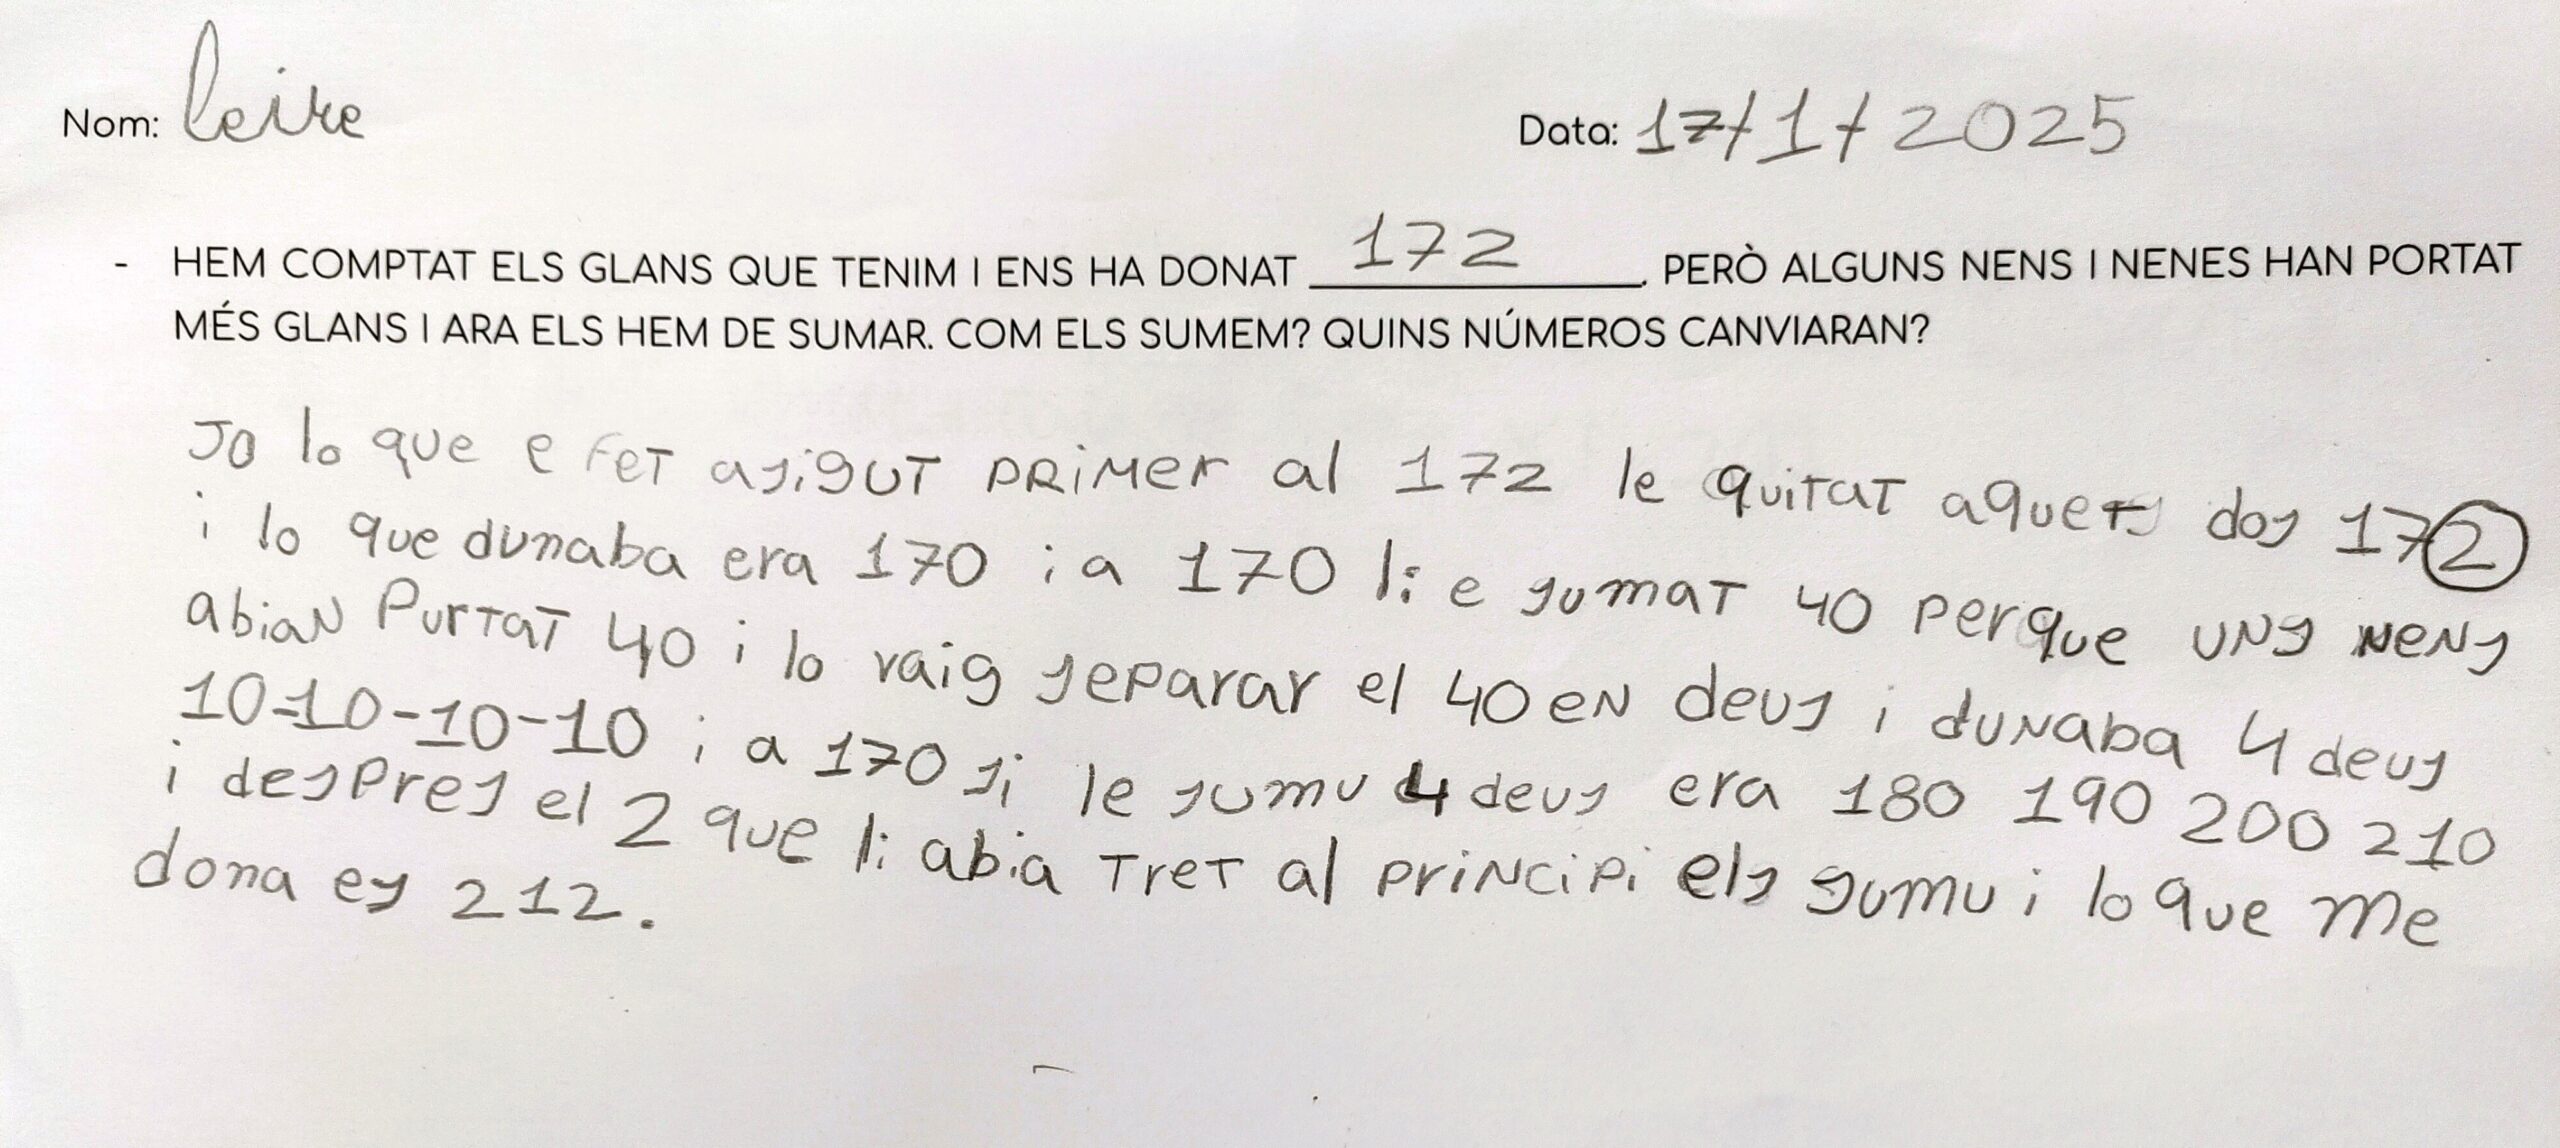 Nom: leire Data: 17/1/2025
- HEM COMPTAT ELS GLANS QUE TENIM I ENS HA DONAT 172. PERÒ ALGUNS NENS I NENES HAN PORTAT
MÉS GLANS I ARA ELS HEM DE SUMAR. COM ELS SUMEM? QUINS NÚMEROS CANVIARAN?
Jo lo que e fet asigut primer al 172 le quitat aquets dos 172
i lo que dunaba era 170 i a 170 li e sumat 40 perque uns nens
abian Purtat 40 i lo vaig separar el 40 en deus i dunaba 4 deus
10-10-10-10 i a 170 si le sumu 4 deus era 180 190 200 210
i despres el 2 que li abia tret al principi els sumu i lo que me
dona es 212.